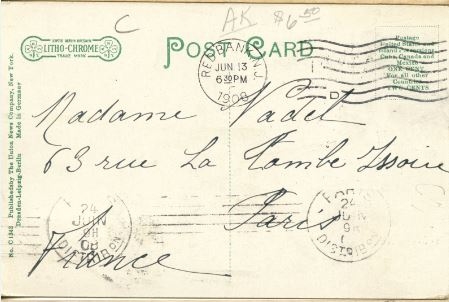 C
AK $6.50
LITHO-CHROME
TRADE MARK
POST CARD
RED BANK N.J.
JUN 13
630PM
1908
D
Postage
United States and
Island Possessions
Cuba, Canada and
Mexico
ONE CENT
For all other
Countries
TWO CENTS
Madame Vadet
63 rue La Tombe Issoire
Paris
France
24
JUIN
08
DISTRIBON
24
JUIN
DISTRIBON
No. C1343 Published by The Union News Company, New York.
Dresden-Leipzig-Berlin Made in Germany